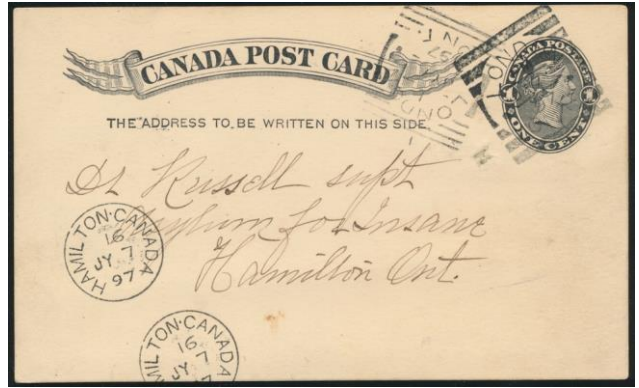 CANADA POST CARD
THE ADDRESS TO BE WRITTEN ON THIS SIDE
CANADA POSTAGE
ONE CENT
1 1
LOND
LOND
ONT
97
Dr Russell supt
Asylum for Insane
Hamilton Ont.
HAMILTON·CANADA
16
JY 7
97
HAMILTON·CANADA
16
JY 7